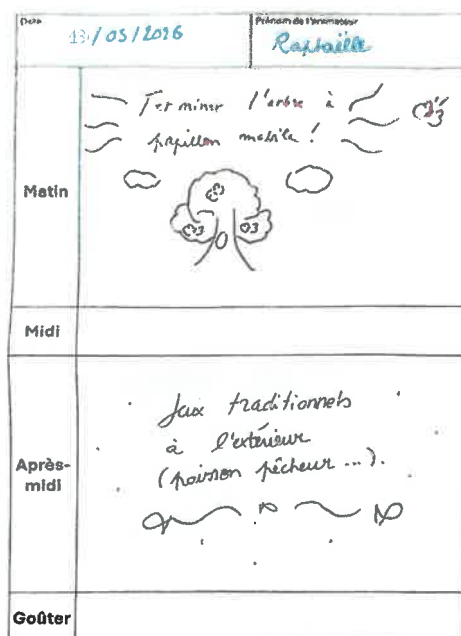 Date
13/05/2026
Prénom de l'animateur
Raphaëlle
Matin
Terminer l'arbre à
papillon mobile !
Midi
Après-
midi
Jeux traditionnels
à l'extérieur
(poisson pêcheur ...).
Goûter